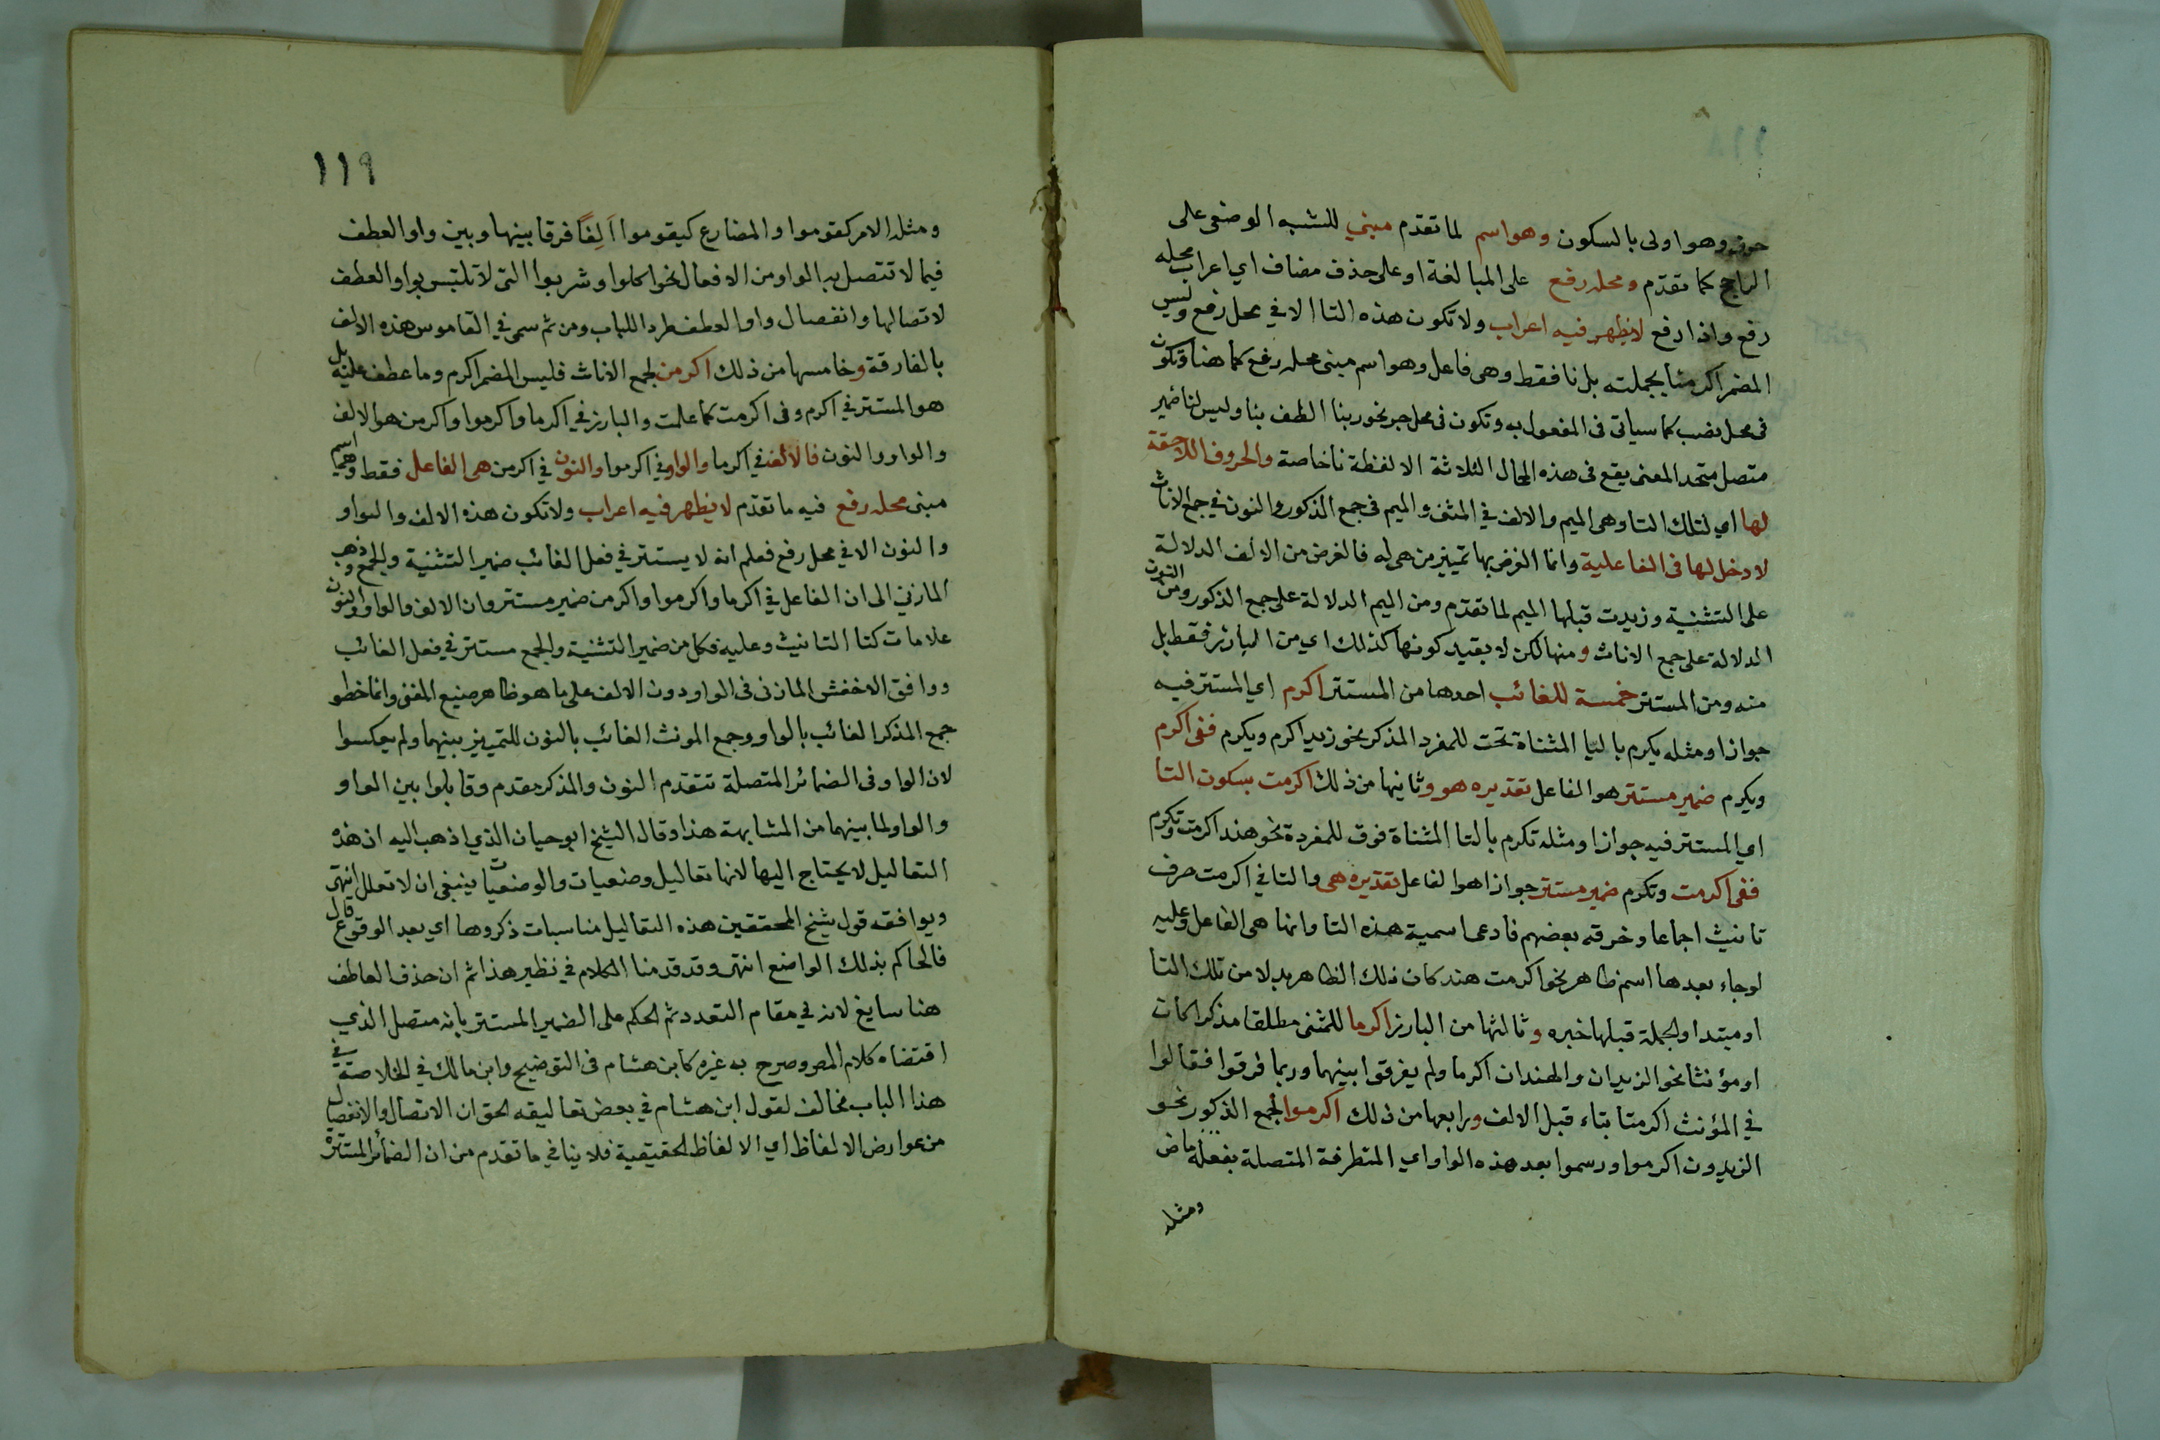 حرف وهو اولى بالسكون وهو اسم لما تقدم مبني للشبه الوضعي على
الراجح كما تقدّم ومحله رفع على المبالغة او على حذف مضاف اي اعراب محله
رفع واذا رفع لا يظهر فيه اعراب ولا تكون هذه التا الا في محل رفع وليس
المضمر اكرمنا بجملته بل نا فقط وهى فاعل وهو اسم مبنى محله رفع كما هنا وتكون
فى محل نصب كما سياتى فى المفعول به وتكون فى محل جر نحو ربنا الطف بنا وليس لنا ضمير
متصل متحد المعنى يقع فى هذه المحال الثلاثة الا لفظة نا خاصة والحروف اللاحقة
لها اي لتلك التا وهى الميم والالف في المثنى والميم فى جمع الذكور والنون في جمع الاناث
لا دخل لها فى الفاعلية وانما الغرض بها تمييز من هى له فالغرض من الالف الدلالة
على التثنية وزيدت قبلها الميم لما تقدّم ومن الميم الدلالة على جمع الذكور ومن النون
الدلالة على جمع الاناث ومنها لكن لا بقيد كونها كذلك اي من البارز فقط بل
منه ومن المستتر خمسة للغائب احدها من المستتر اكرم اي المستتر فيه
جوازا ومثله يكرم باليا المثناة تحت للمفرد المذكر نحو زيد اكرم ويكرم ففى اكرم
ويكرم ضمير مستتر هو الفاعل تقديره هو وثانيها من ذلك اكرمت بسكون التا
اي المستتر فيه جوازا ومثله تكرم بالتا المثناة فوق للمفردة نحو هند اكرمت وتكرم
ففى اكرمت وتكرم ضمير مستتر جوازا هو الفاعل تقديره هى والتا في اكرمت حرف
تانيث اجماعا وخرقه بعضهم فادعى اسمية هذه التا وانها هى الفاعل وعليه
لو جاء بعدها اسم ظاهر نحو اكرمت هند كان ذلك الظاهر بدلا من تلك التا
او مبتدا والجملة قبلها خبره وثالثها من البارز اكرما للمثنى مطلقا مذكرا كان
او مؤنثا نحو الزيدان والهندان اكرما ولم يفرقوا بينهما وربما فرقوا فقالوا
في المؤنث اكرمتا بتاء قبل الالف ورابعها من ذلك اكرموا لجمع الذكور نحو
الزيدون اكرموا ورسموا بعد هذه الواو اي المتطرفة المتصلة بفعله ماض
ومثله
١١٩
ومثله الامر كقوموا والمضارع كيقوموا اَلِفًا فرقا بينها وبين واو العطف
فيما لا تتصل به الواو من الافعال نحو اكلوا وشربوا التى لا تلتبس بواو العطف
لاتصالها وانفصال واو العطف طرد اللباب ومن ثم سمى في القاموس هذه الالف
بالفارقة وخامسها من ذلك اكرمن لجمع الاناث فليس المضمر اكرم وما عطف عليه بل
هو المستتر في اكرم وفى اكرمت كما علمت والبارز في اكرما واكرموا واكرمن هو الالف
والواو والنون فالالف في اكرما والواو في اكرموا والنون في اكرمن هى الفاعل فقط وهى اسم
مبنى محله رفع فيه ما تقدّم لا يظهر فيه اعراب ولا تكون هذه الالف والواو
والنون الا في محل رفع فعلم انه لا يستتر في فعل الغائب ضمير التثنية والجمع وذهب
المازني الى ان الفاعل في اكرما واكرموا واكرمن ضمير مستتر وان الالف والواو والنون
علامات كتا التانيث وعليه فكل من ضمير التثنية والجمع مستتر في فعل الغائب
ووافق الاخفش المازنى فى الواو دون الالف على ما هو ظاهر صنيع المغنى وانما خصوا
جمع المذكر الغائب بالواو وجمع المونث الغائب بالنون للتمييز بينهما ولم يعكسوا
لان الواو فى الضمائر المتصلة تتقدم النون والمذكر مقدم وقابلوا بين الواو
والواو لما بينهما من المشابهة هذا وقال الشيخ ابو حيان الذي اذهب اليه ان هذه
التعاليل لا يحتاج اليها لانها تعاليل وضعيات والوضعيات ينبغى ان لا تعلل انتهى
ويوافقه قول شيخ المحققين هذه التعاليل مناسبات ذكروها اي بعد الوقوع قال
فالحاكم بذلك الواضع انتهى وقد قدمنا الكلام في نظير هذا ثم ان حذف العاطف
هنا سايغ لانه في مقام التعدد ثم الحكم على الضمير المستتر بانه متصل الذي
اقتضاه كلام المص وصرح به غيره كابن هشام فى التوضيح وابن مالك في الخلاصة في
هذا الباب مخالف لقول ابن هشام في بعض تعاليقه الحق ان الاتصال والانفصال
من عوارض الالفاظ اي الالفاظ الحقيقية فلا ينافي ما تقدم من ان الضمائر المستترة